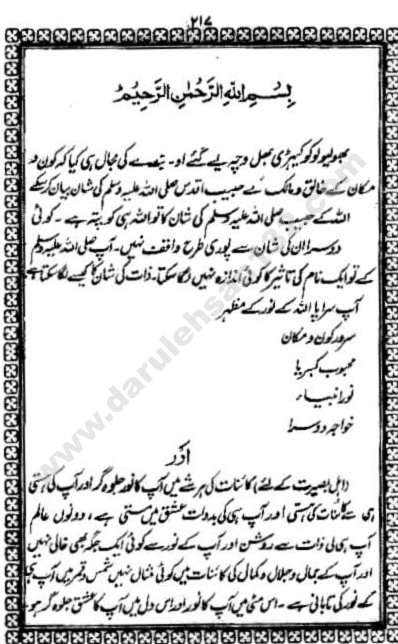 ۲۱۷
بِسْمِ اللهِ الرَّحْمٰنِ الرَّحِيْمِ
بھولیو لوکو کیہڑی بھل وچہ پے گئے او۔ بندے کی مجال ہی کیا کہ کون و
مکان کے خالق و مالک کے حبیب اقدس صلی اللہ علیہ وسلم کی شان بیان کر سکے
اللہ کے حبیب صلی اللہ علیہ وسلم کی شان کا تو اللہ ہی کو پتہ ہے۔ کوئی
دوسرا ان کی شان سے پوری طرح واقف نہیں۔ آپ صلی اللہ علیہ وسلم
کے تو ایک نام کی تاثیر کا کوئی اندازہ نہیں لگا سکتا۔ ذات کی شان کا کیسے لگا سکتا ہے
آپ سراپا اللہ کے نور کے مظہر
سرور کون و مکان
محبوب کبریا
نور انبیاء
خواجہ دوسرا
اور
(اہل بصیرت کے لئے) کائنات کی ہر شے میں آپ کا نور جلوہ گر اور آپ کی ہستی
ہی سے کائنات کی ہستی اور آپ ہی کی بدولت عشق میں مستی ہے، دونوں عالم
آپ ہی کی ذات سے روشن اور آپ کے نور سے کوئی ایک جگہ بھی خالی نہیں
اور آپ کے جمال و جلال و کمال کی کائنات میں کوئی مثال نہیں شمس و قمر میں آپ ہی
کے نور کی تابانی ہے۔ اس مٹی میں آپ کا نور اور اس دل میں آپ کا عشق جلوہ گر ہو
www.darulehsan